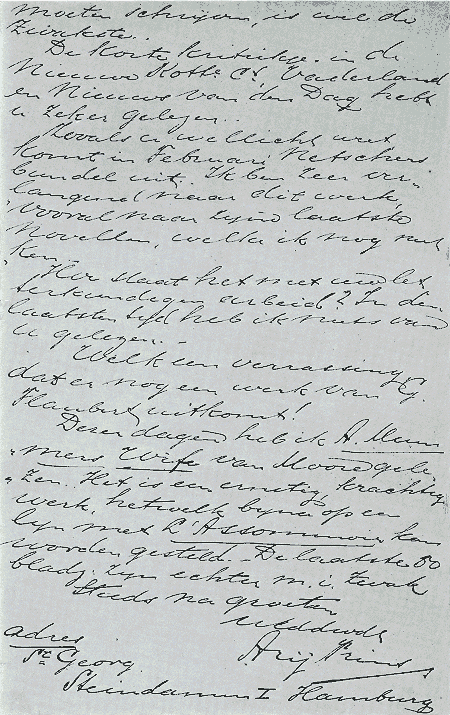 moeten schrijven, is wel de
zwakste.
De korte kritiekje in de
Nieuwe Rotts Ct, Vaderland
en Nieuws van den Dag hebt
u zeker gelezen.
Zooals u wellicht weet
komt in Februari Netschers
bundel uit. Ik ben zeer ver-
langend naar dit werk,
vooral naar zijne laatste
novellen, welke ik nog niet
ken.
Hoe staat het met uw let
terkundigen arbeid? In den
laatsten tijd heb ik niets van
u gelezen.
Welk een verrassing
dat er nog een werk van G.
Flaubert uitkomt!
Dezer dagen heb ik A Mum
mers Wife van Moore gele
zen. Het is een ernstig, krachtig
werk, hetwelk bijna op een
lijn met L'Assommoir kan
worden gesteld. De laatste 50
bladz. zijn echter m. i. zwak
Steeds na groeten
Arij Prins
adres
St Georg
Steindamm I Hamburg